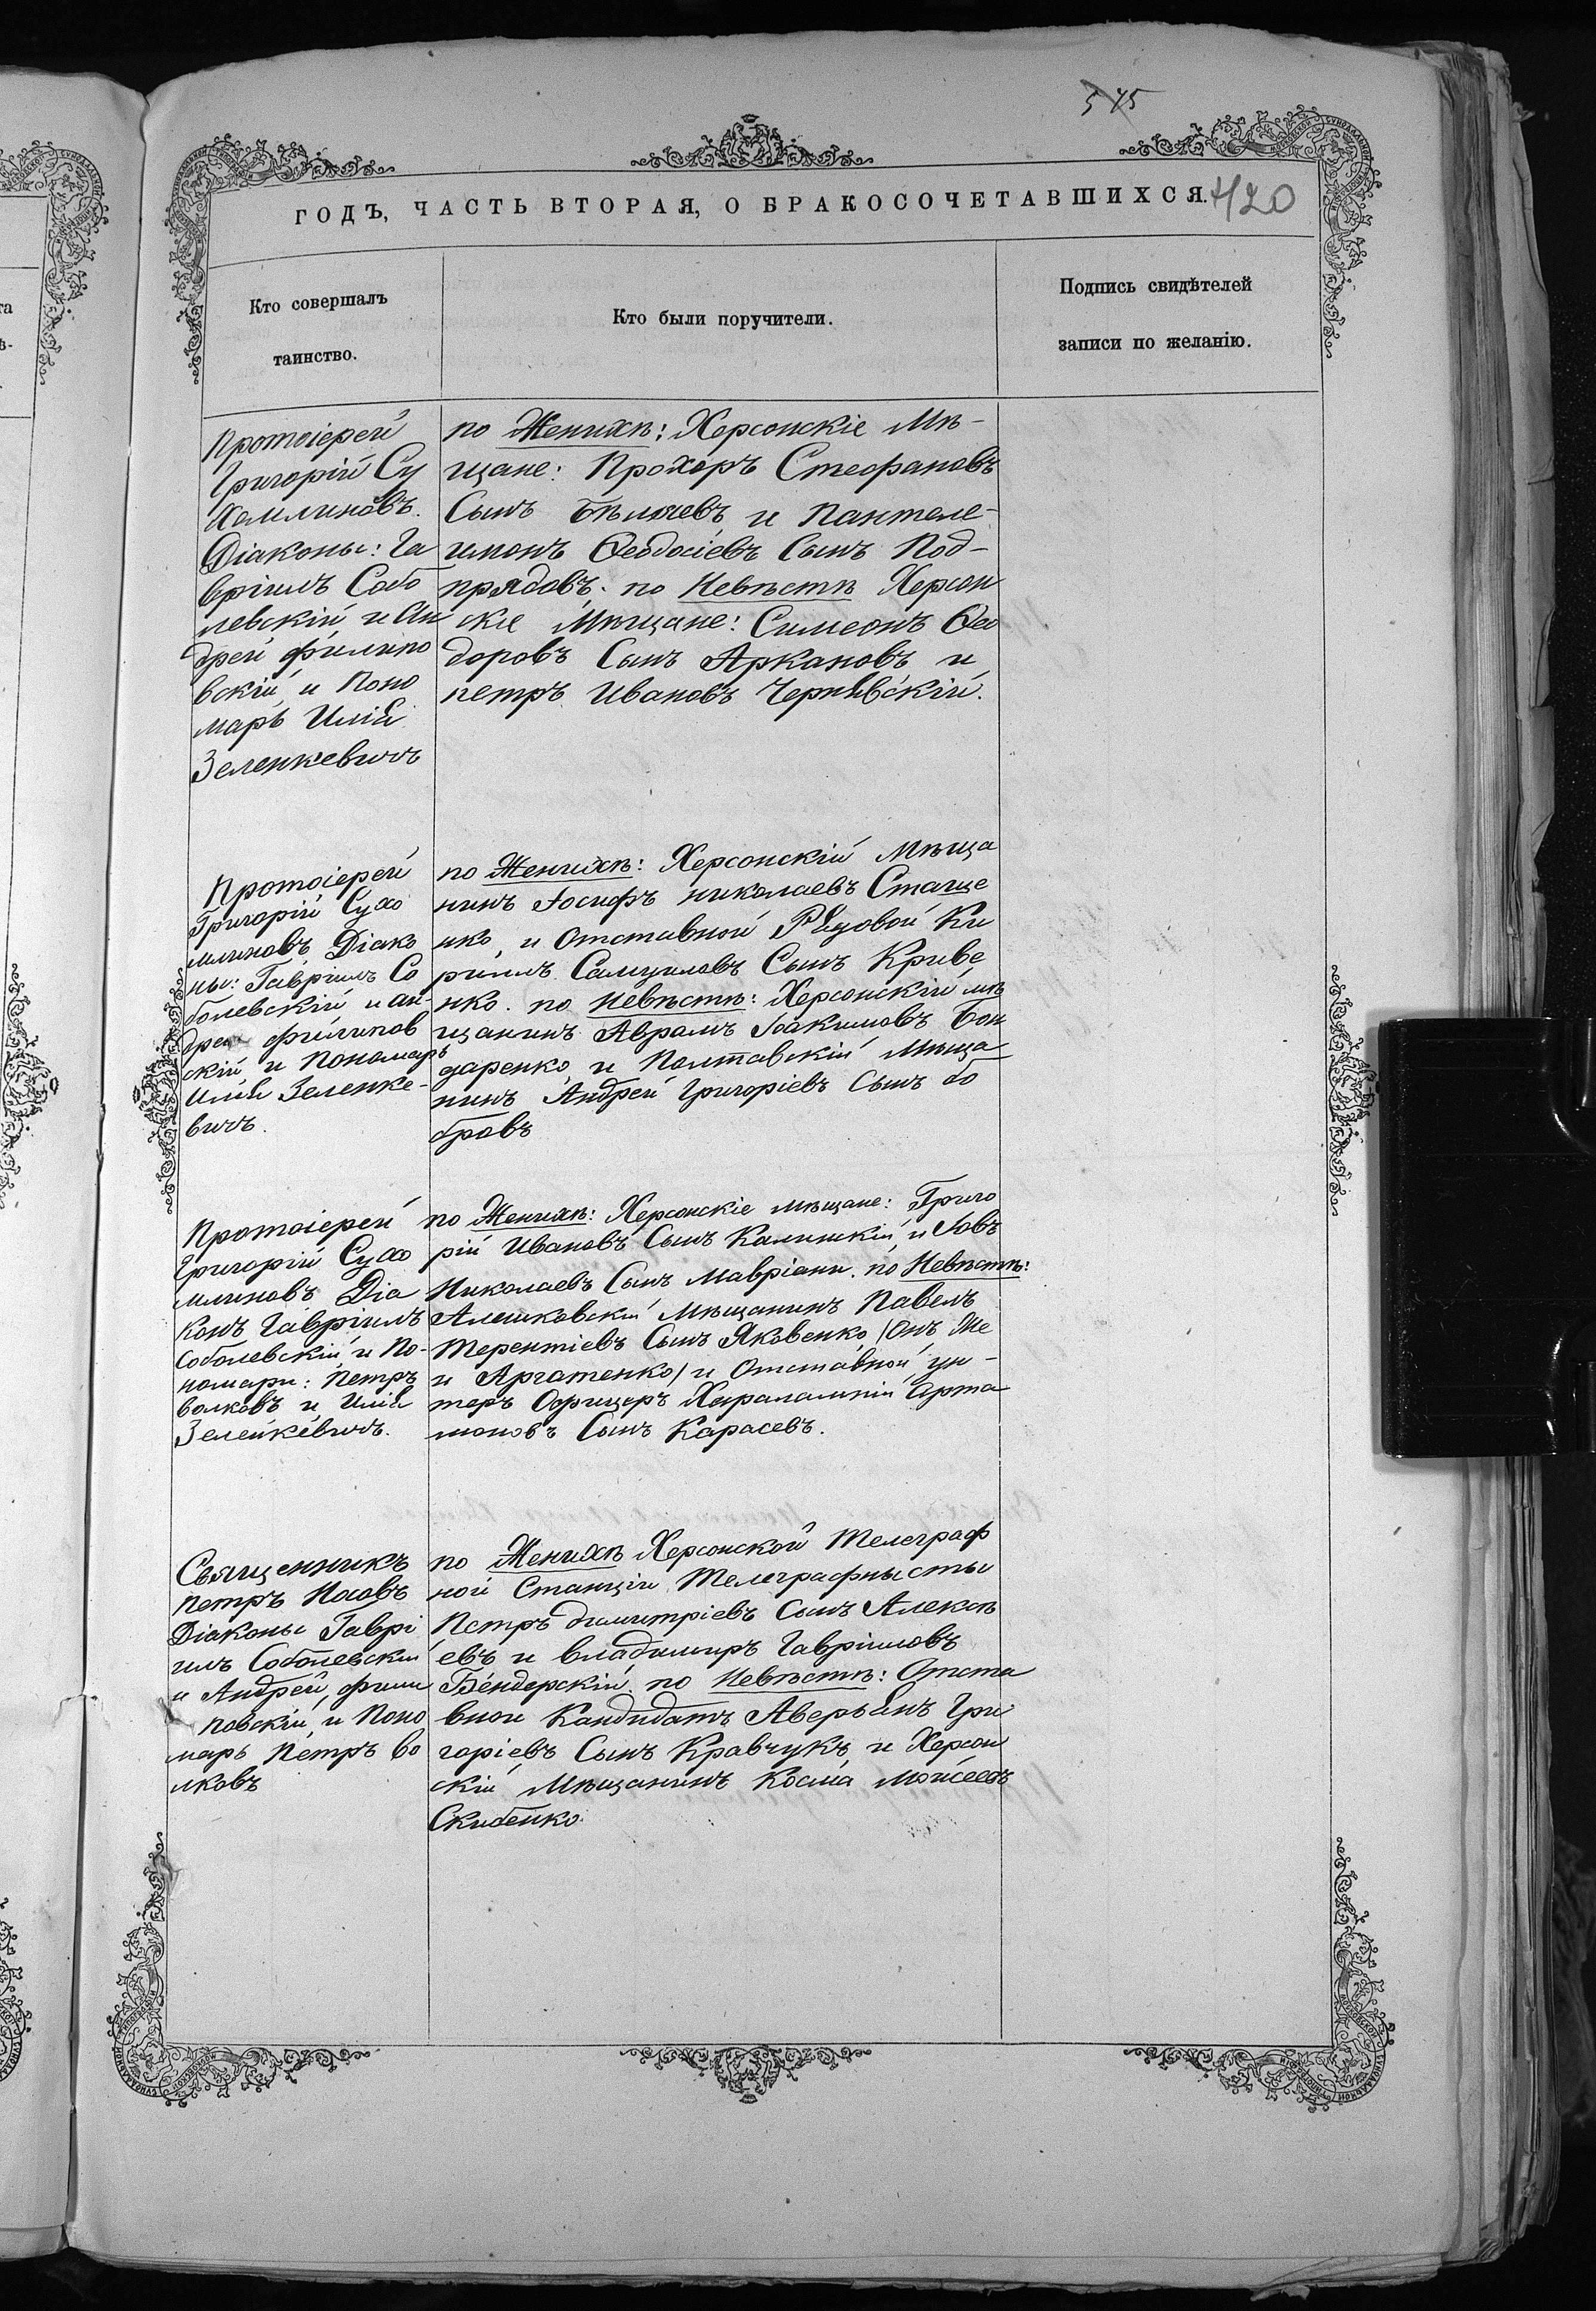 545
ГОДЪ, ЧАСТЬ ВТОРАЯ, О БРАКОСОЧЕТАВШИХСЯ.
420
Кто совершалъ
таинство.
Кто были поручители.
Подпись свидѣтелей
записи по желанію.
Протоіерей
Григорій Су
хомлиновъ.
Діаконы: Га
вріилъ Собо
левскій и Ан
дрей Филипо
вскій и Поно
марь Илія
Зеленкевичъ
по Женихѣ: Херсонскіе Мѣ-
щане: Прохоръ Стефановъ
Сынъ Бѣляевъ и Пантеле-
имонъ Ѳеодосіевъ Сынъ Под-
прядовъ. по Невѣстѣ Херсон
скіе Мѣщане: Симеонъ Ѳео
доровъ Сынъ Аркановъ и
петръ Ивановъ Чернявскій.
Протоіерей
Григорій Сухо
млиновъ Діако
ны: Гавріилъ Со
болевскій и Ан-
дрей Филипов
скій и Пономарь
Илія Зеленке-
вичъ.
по Женихѣ: Херсонскій Мѣща
нинъ Іосифъ Николаевъ Стаще
нко, и Отставной Рядовой Ки
рилъ Самуиловъ Сынъ Криве
нко. по Невѣстѣ: Херсонскій мѣ
щанинъ Аврамъ Іоакимовъ Бон
даренко и Полтавскій Мѣща
нинъ Андрей Григоріевъ Сынъ Бо
бровъ
Протоіерей
Григорій Сухо
млиновъ Діа
конъ Гавріилъ
Соболевскій и По-
номари: Петръ
Волковъ и Илія
Зеленкевичъ.
по Женихѣ: Херсонскіе мѣщане: Григо
рій Ивановъ Сынъ Калинскій, и Іовъ
Николаевъ Сынъ Мавріани. по Невѣстѣ:
Алешковскій Мѣщанинъ Павелъ
Терентіевъ Сынъ Яковенко, /Онъ Же
и Аргатенко/ и Отставной ун-
теръ Офицеръ Харалампій Арта
моновъ Сынъ Карасевъ.
Священникъ
Петръ Носовъ
Діаконы Гаврі
илъ Соболевскій
и Андрей, Фили
повскій, и Поно
марь Петръ Во
лковъ
по Женихѣ Херсонской Телеграф
ной Станціи Телеграфнысты
Петръ Димитріевъ Сынъ Алексѣ
евъ и Владимиръ Гавріиловъ
Бендерскій. по Невѣстѣ: Отста
вной Кандидатъ Аверьянъ Гри
горіевъ Сынъ Кравчукъ и Херсон
скій Мѣщанинъ Косма Моисеевъ
Скибенко.